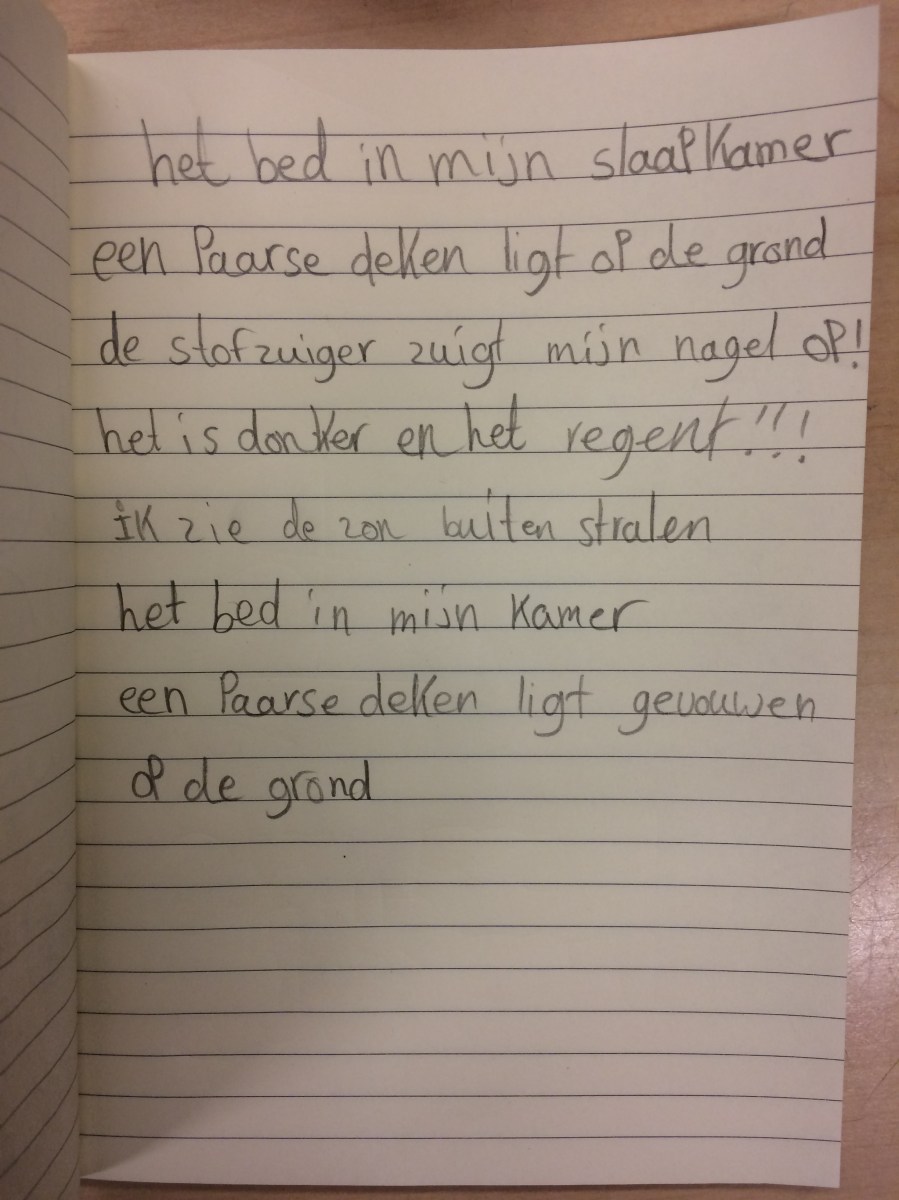 het bed in mijn slaapkamer
een Paarse deken ligt op de grond
de stofzuiger zuigt mijn nagel op!
het is donker en het regent!!!
ik zie de zon buiten stralen
het bed in mijn kamer
een Paarse deken ligt gevouwen
op de grond